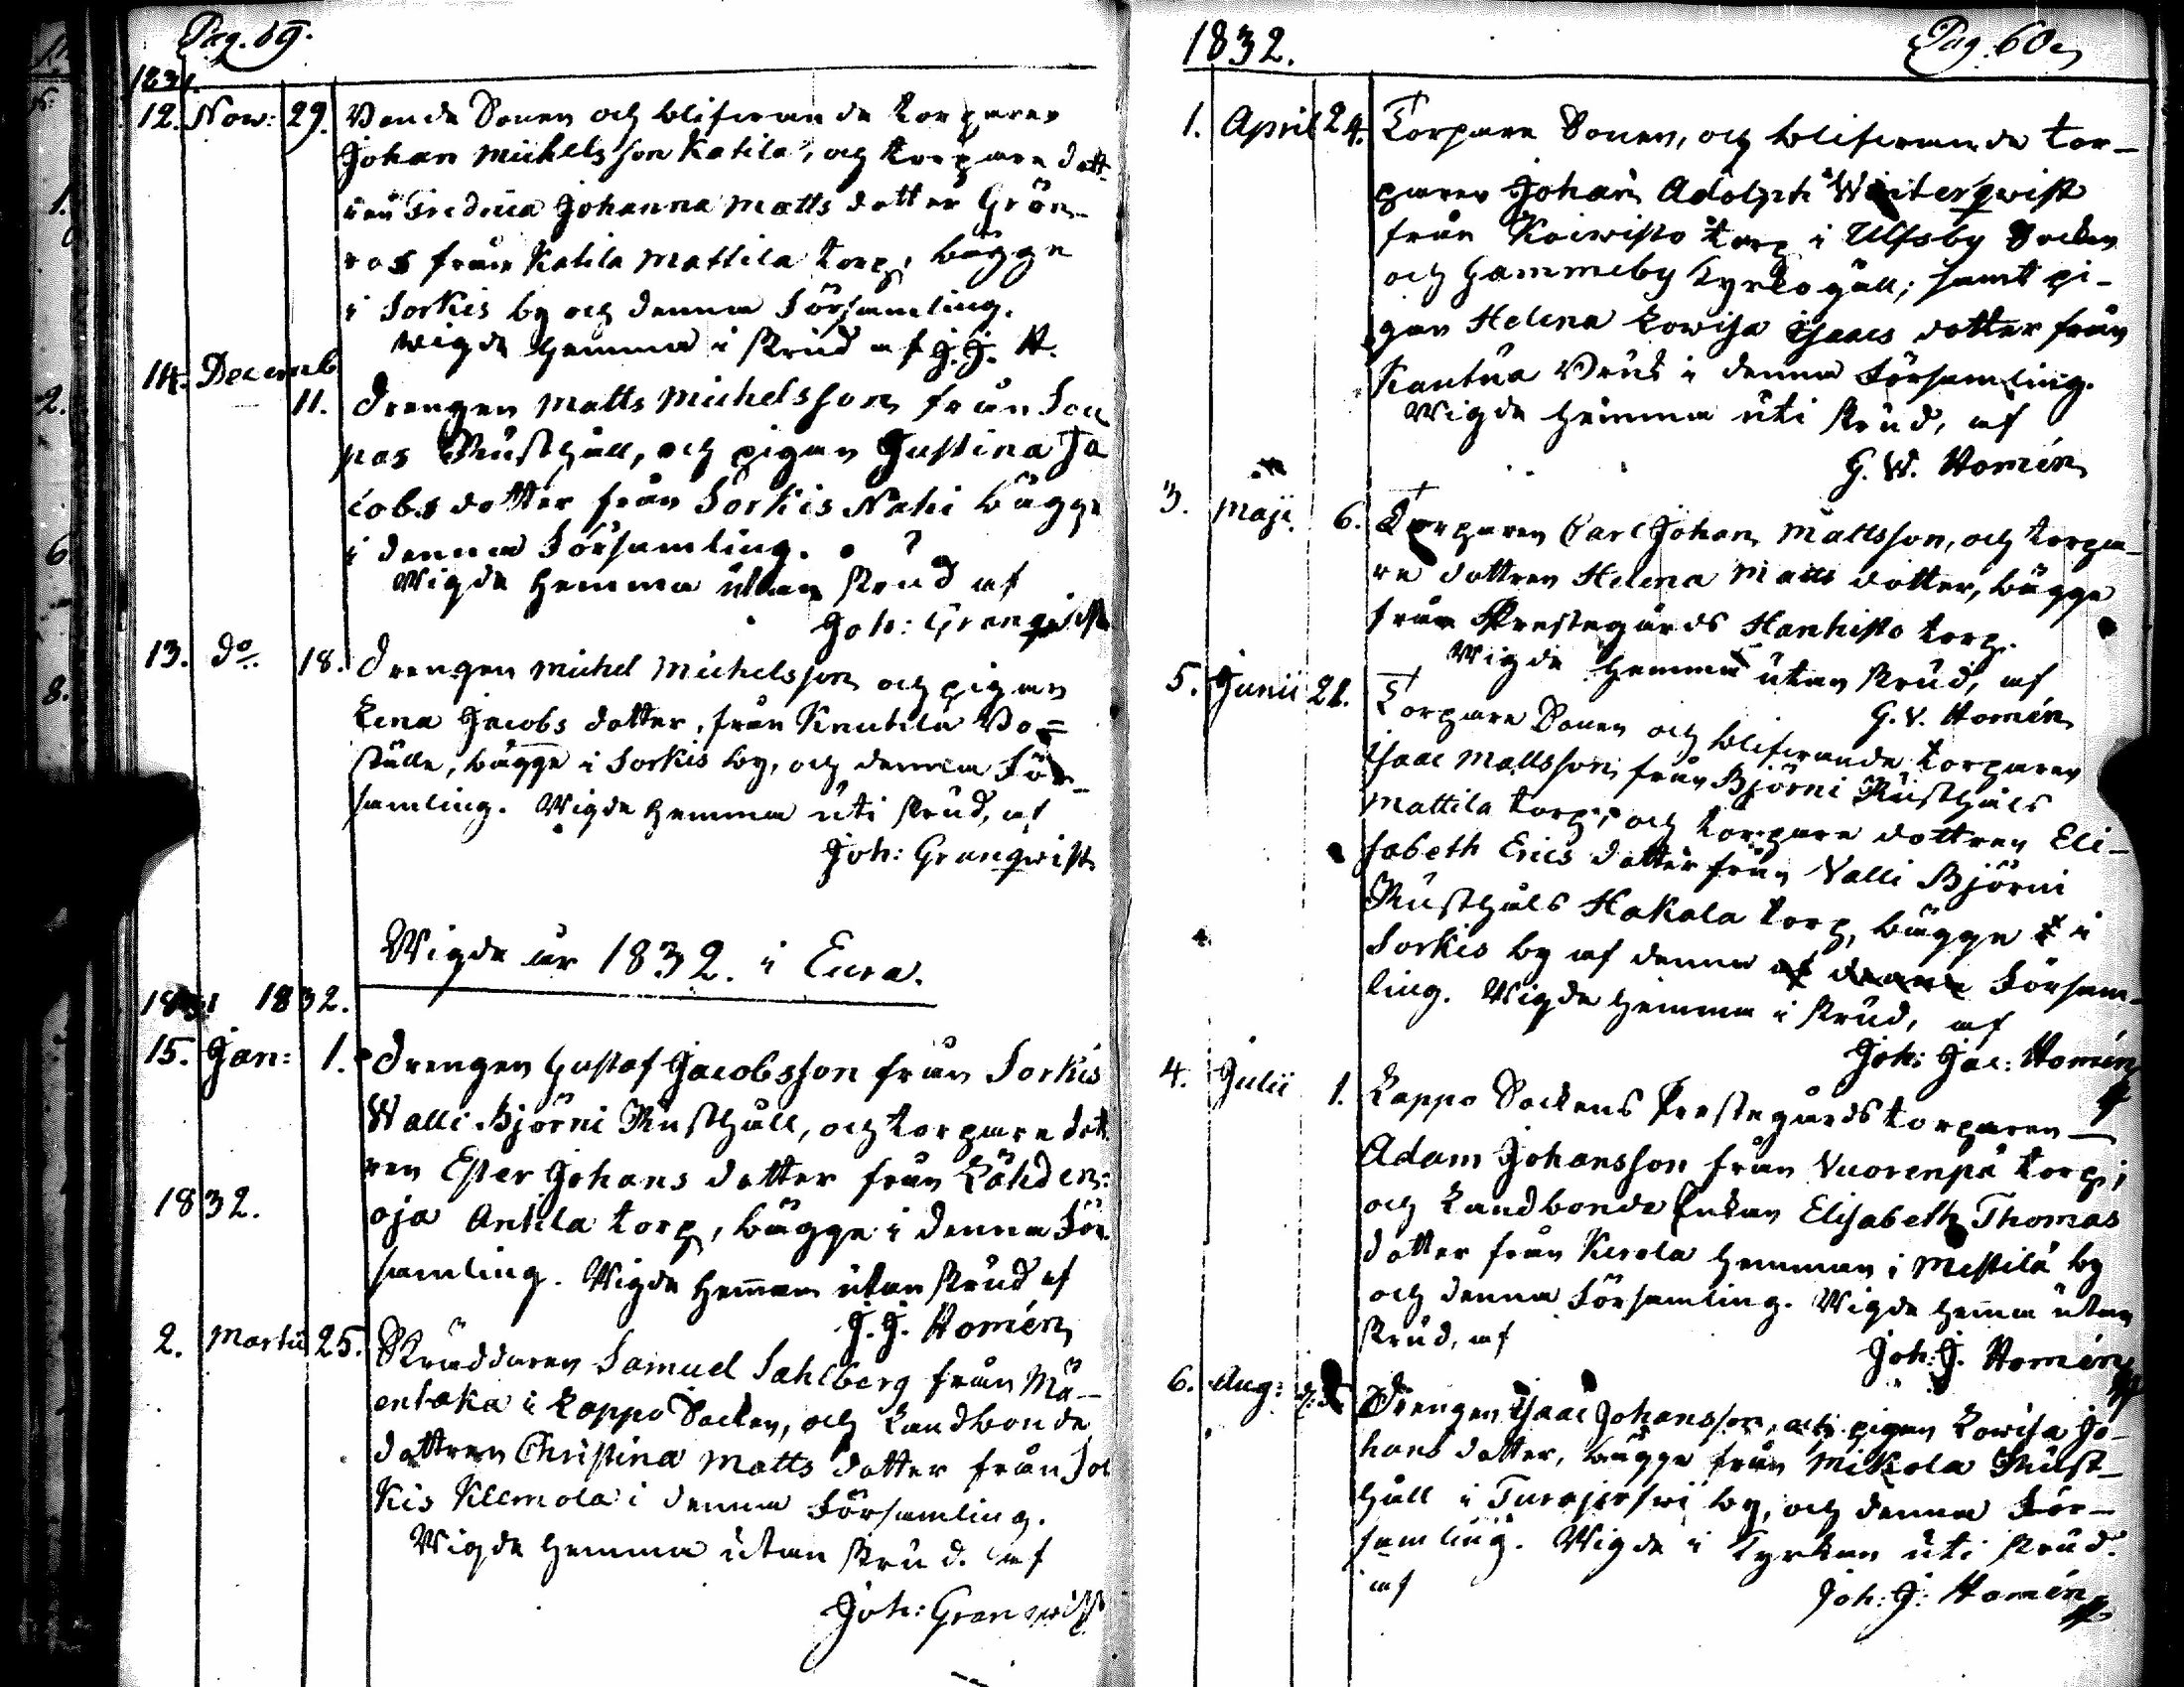 Pag. 59.
1831.
12. Nov: 29. Bonde Sonen och blifwande torparen
Johan Michelsson Katila, och torpare dott-
ren Fredrica Johanna Matts dotter Grön-
ros från Katila Mattila torp, bägge
i Sorkis by och denna Församling.
Wigde hemma i skrud af J. J. H.
14. Decemb.
11. Drengen Matts Michelsson från Sou
pas Rusthåll, och pigan Justina Ja
cobs dotter från Sorkis Nahi bägge
i denna Församling.
Wigde hemma utan skrud af
Joh: Granqwist
13. do. 18. Drengen Michel Michelsson och pigan
Lena Jacobs dotter, från Knutila Bo=
ställe, bägge i Sorkis by, och denna För-
samling. Wigde hemma uti skrud, af
Joh: Granqwist
Wigde år 1832. i Eura.
1831 1832.
15. Jan: 1. Drengen Gustaf Jacobsson från Sorkis
Walli Björni Rusthåll, och torpare dott
ren Ester Johans dotter från Lähden:
oja Antila torp, bägge i denna För
samling. Wigde hemma utan skrud af
J. J. Homén
1832.
2. Martii 25. Skräddaren Samuel Sahlberg från Mä-
entaka i Lappo Socken, och Landbonde
dottren Christina Matts dotter från Sor
kis Klemola i denna Församling.
Wigde hemma utan skrud. af
Joh: Granqwist
1832. Pag. 60.
1. April 24. Torpare Sonen, och blifwande tor-
paren Johan Adolph Winterqwist
från Koiwisto torp i Ulfsby Socken
och Hammeby Kyrkogäll; samt pi-
gan Helena Lowisa Isaacs dotter från
Kautua Bruk i denna Församling.
Wigde hemma uti skrud, af
G. W. Homén
3. Maji. 6. Torparen Carl Johan Mattsson, och torpa-
re dottren Helena Matts dotter, bägge
från Prestegårds Hanhisto torp.
Wigde hemma utan skrud, af
G. V. Homén
5. Junii 21. Torpare Sonen och blifwande torparen
Isaac Mattsson från Björni Rusthåls
Mattila torp, och torpare dottren Eli-
sabeth Erics dotter från Valli Björni
Rusthåls Hakala torp, bägge i
Sorkis by af denna af denna Försam-
ling. Wigde hemma i skrud, af
Joh: Jac: Homén
4. Julii 1. Lappo Sockens Prestegårds torparen
Adam Johansson från Vuorenpä torp;
och Landbonde Enkan Elisabeth Thomas
dotter från Kerola hemman i Mestilä by
och denna Församling. Wigde hemma utan
skrud, af
Joh: J. Homén
6. Aug: Drengen Isaac Johansson, och pigan Lowisa Jo-
hans dotter, bägge från Mikola Rust-
håll i Turajerfwi by, och denna För-
samling. Wigde i Kyrkan uti skrud.
af
Joh: J: Homén